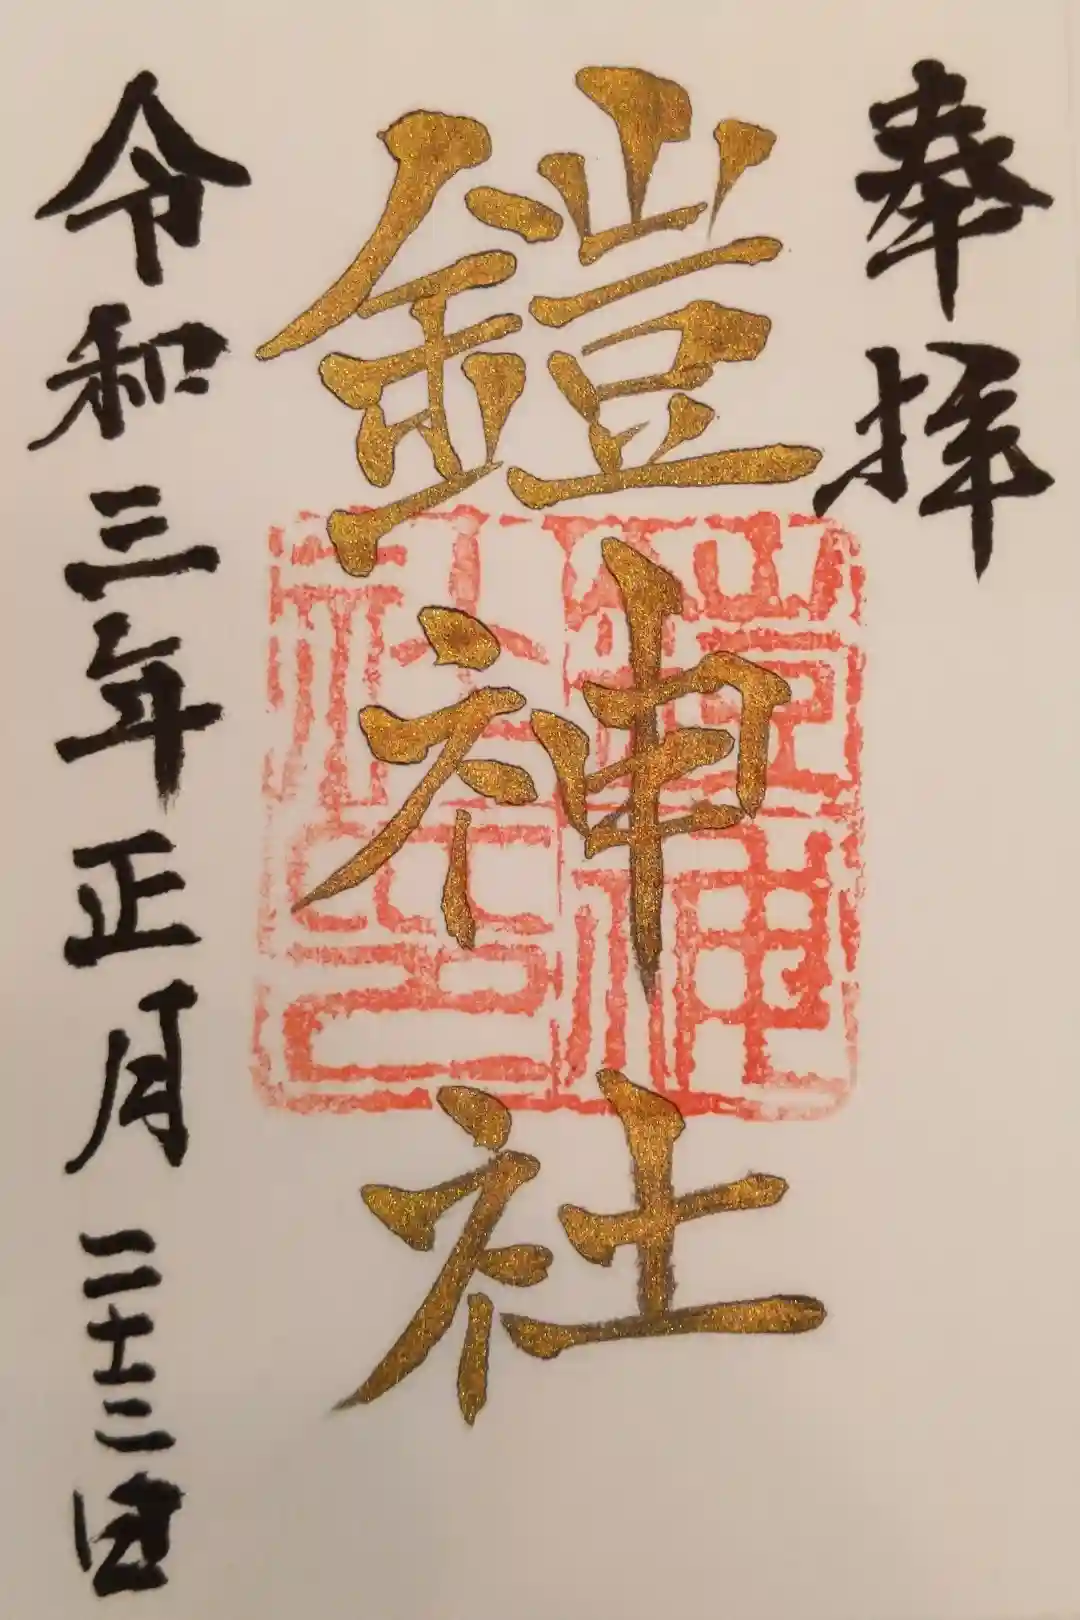 奉拝
鎧神社
鎧神社之印
令和三年正月二十二日